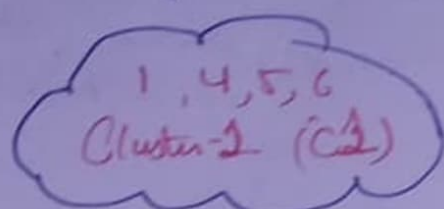 1, 4, 5, 6
Cluster-1 (C1)